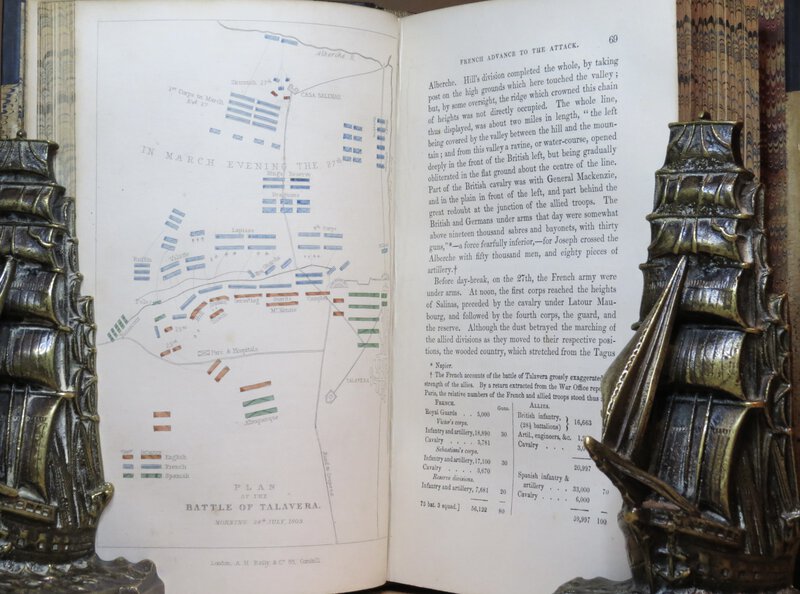 Alberche R.
CASA SALINAS
1st Corps on March
IN MARCH EVENING THE 27th
Lapisse
4th Corps
Ruffin
Villatte
Campbell
Parc & Hospitals
TALAVERA
Albuquerque
English
French
Spanish
PLAN
OF THE
BATTLE OF TALAVERA.
MORNING, 28th JULY, 1809
London. A. H. Baily & Co. 83, Cornhill.
FRENCH ADVANCE TO THE ATTACK. 69
Alberche. Hill's division completed the whole, by taking
post on the high grounds which here touched the valley;
but, by some oversight, the ridge which crowned this chain
of heights was not directly occupied. The whole line,
thus displayed, was about two miles in length, "the left
being covered by the valley between the hill and the moun-
tain; and from this valley a ravine, or water-course, opened
deeply in the front of the British left, but being gradually
obliterated in the flat ground about the centre of the line.
Part of the British cavalry was with General Mackenzie,
and in the plain in front of the left, and part behind the
great redoubt at the junction of the allied troops. The
British and Germans under arms that day were somewhat
above nineteen thousand sabres and bayonets, with thirty
guns,"*—a force fearfully inferior,—for Joseph crossed the
Alberche with fifty thousand men, and eighty pieces of
artillery.†
Before day-break, on the 27th, the French army were
under arms. At noon, the first corps reached the heights
of Salinas, preceded by the cavalry under Latour Mau-
bourg, and followed by the fourth corps, the guard, and
the reserve. Although the dust betrayed the marching of
the allied divisions as they moved to their respective posi-
tions, the wooded country, which stretched from the Tagus
* Napier.
† The French accounts of the battle of Talavera grossly exaggerated
strength of the allies. By a return extracted from the War Office
Paris, the relative numbers of the French and allied troops stood thus
FRENCH. Guns.
Royal Guards . . 5,000
Victor's corps.
Infantry and artillery, 18,890 30
Cavalry . . . . 3,781
Sebastiani's corps.
Infantry and artillery, 17,100 30
Cavalry . . . . 3,670
Reserve divisions.
Infantry and artillery, 7,681 20
56,122 80
ALLIES.
British infantry, } 16,663
Artil., engineers, &c.
Cavalry . . . .
20,997
Spanish infantry &
artillery . . . 33,000 70
Cavalry . . . . 6,000
59,997 100